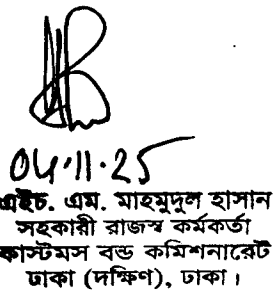 04.11.25
এইচ. এম. মাহমুদুল হাসান
সহকারী রাজস্ব কর্মকর্তা
কাস্টমস বন্ড কমিশনারেট
ঢাকা (দক্ষিণ), ঢাকা।